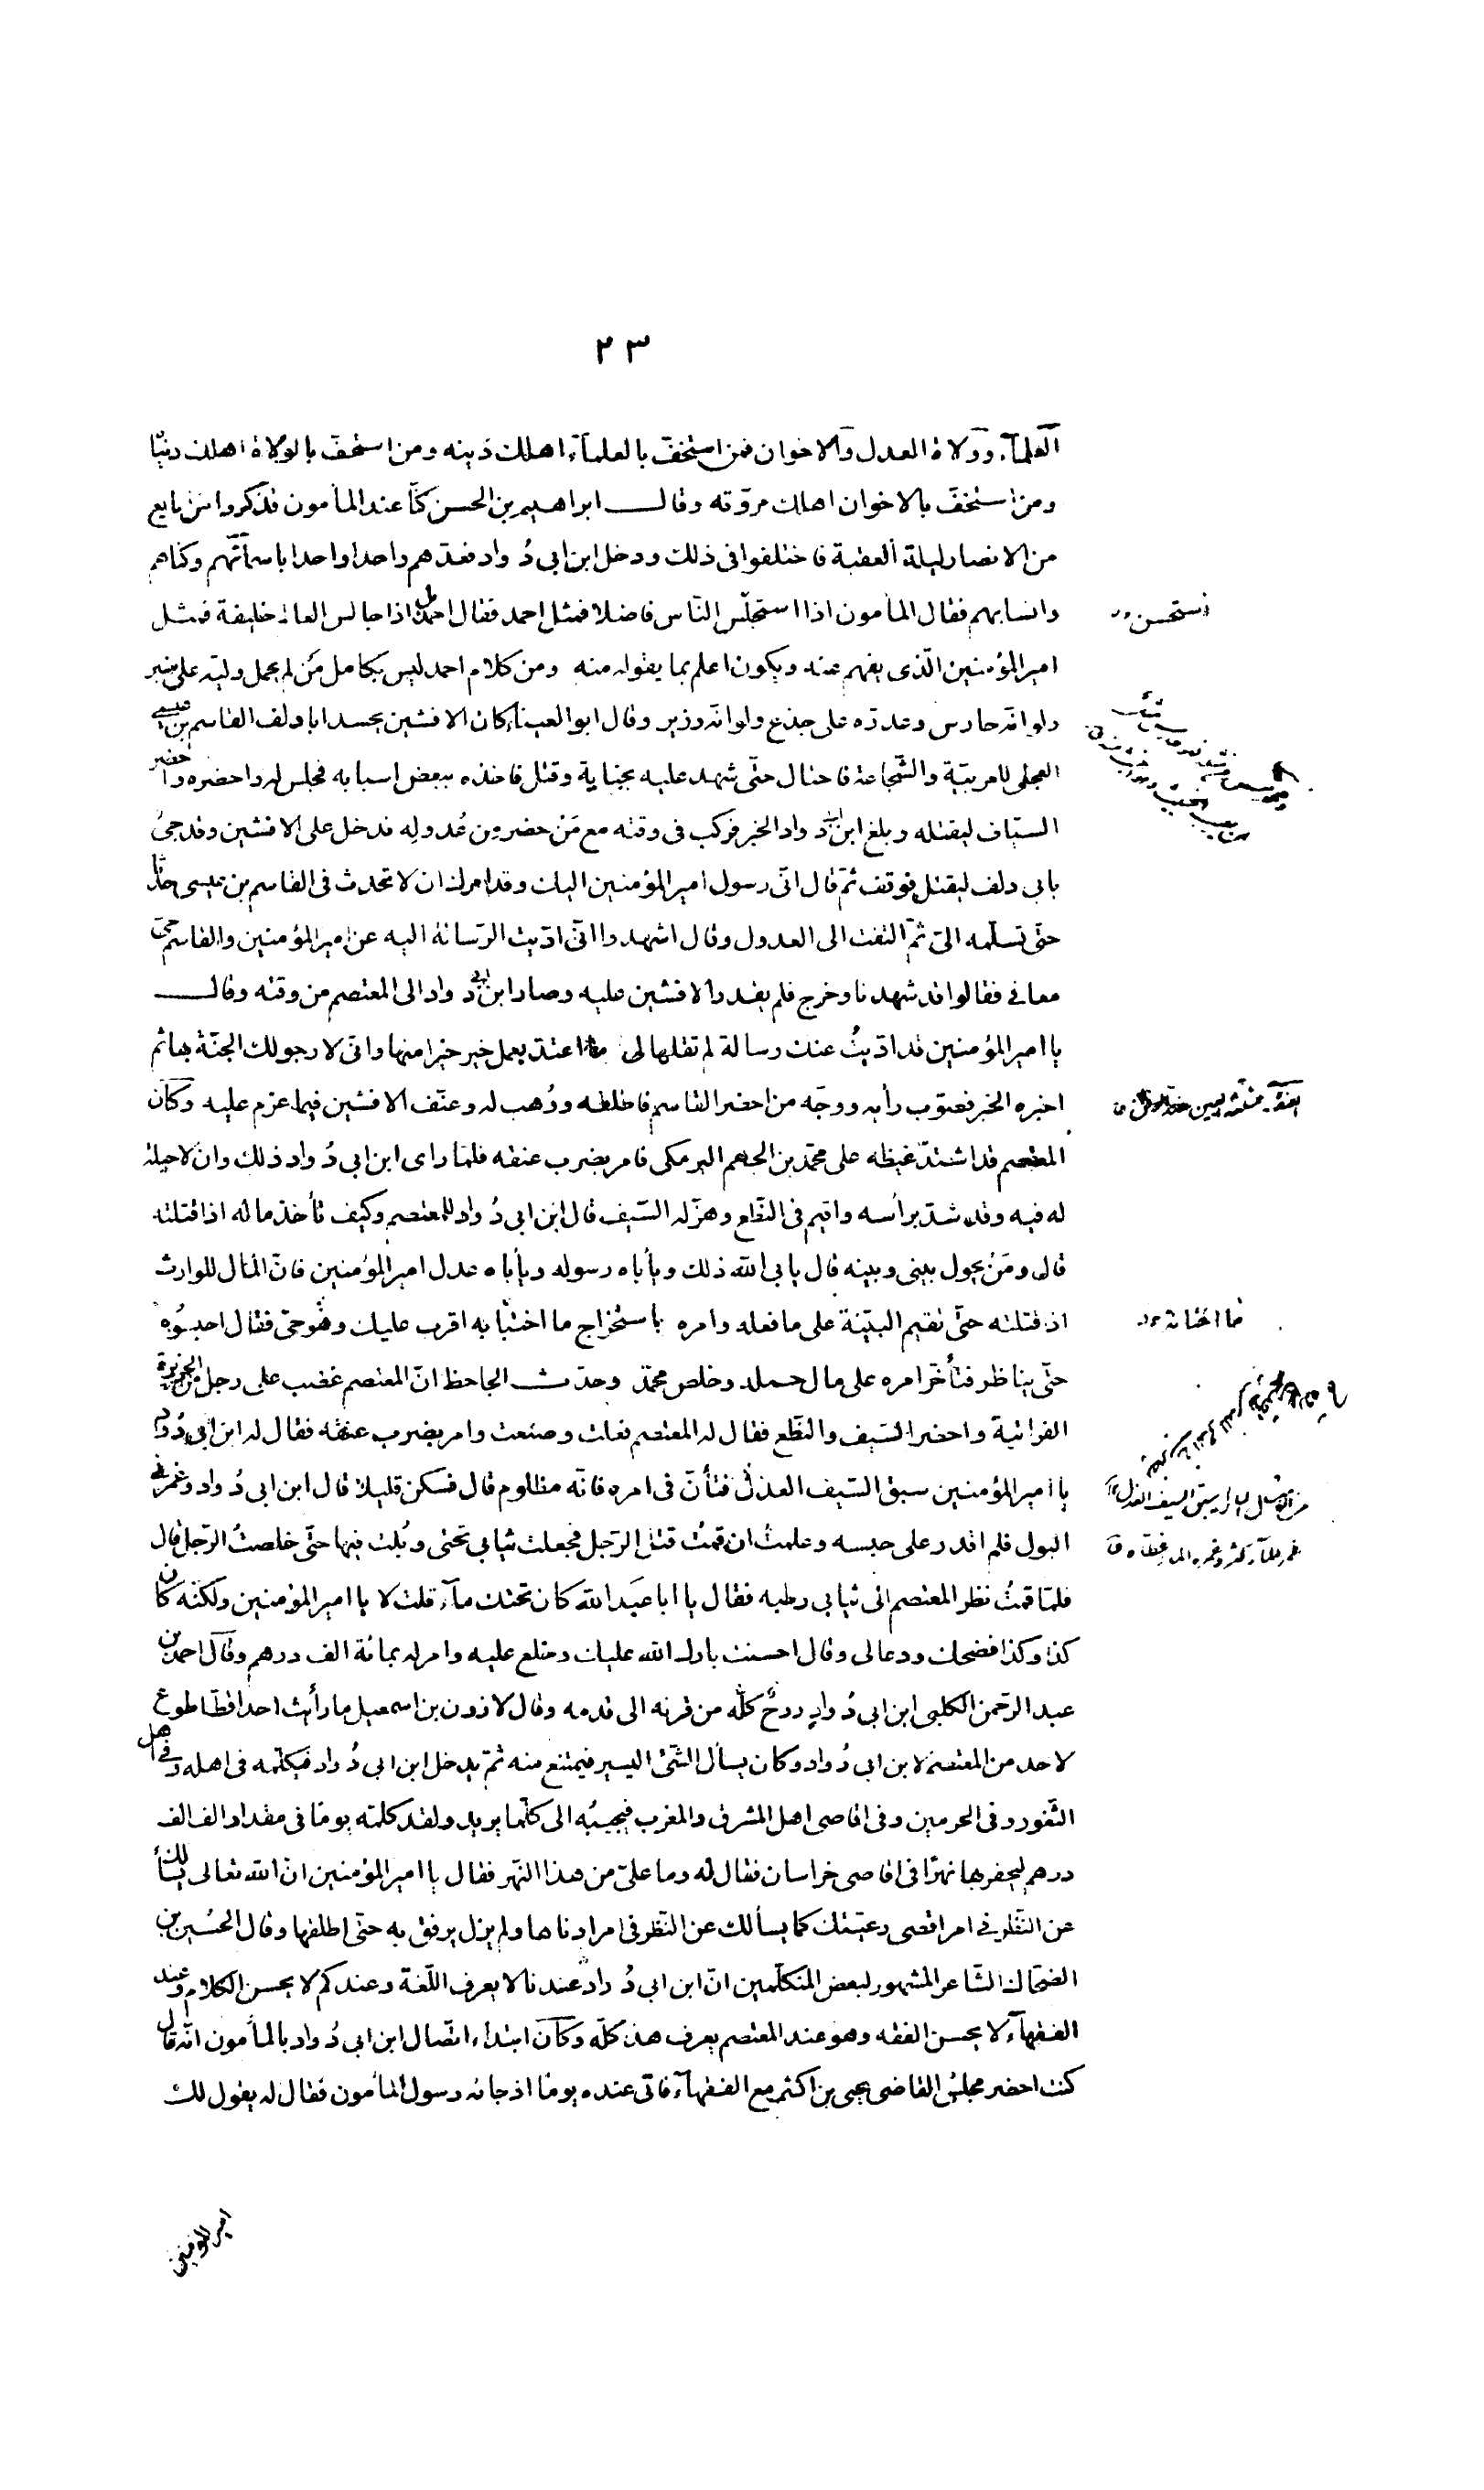 ٢٣
العلمآء وولاة العدل والاخوان فمن استخفّ بالعلمآء اهلك دينه ومن استخفّ بالولاة اهلك دنيا
ومن استخفّ بالاخوان اهلك مروّته وقال ابراهيم بن الحسن كنّا عند المأمون فذكروا من بايع
من الانصار ليلة العقبة فاختلفوا فى ذلك ودخل ابن ابى دُواد فعدّهم واحدا واحدا باسمآئهم وكناهم
وانسابهم فقال المأمون اذا استجلس النّاس فاضلا فمثل احمد فقال احمد بل اذا جالس العالم خليفة فمثل
امير المؤمنين الّذى يفهم عنه ويكون اعلم بما يقوله منه ومن كلام احمد ليس بكامل مَن لم يحمل وليّه على منبر
ولو انّه حارس وعدوّه على جذع ولو انّه وزير وقال ابو العيناء كان الافشين يحسد ابا دلف القاسم بن عيسى
العجلى للعربيّة والشّجاعة فاحتال حتّى شهد عليه بجناية وقتل فاخذه ببعض اسبابه فجلس له واحضره واحضر
السيّاف ليقتله وبلغ ابن ابى دواد الخبر فركب فى وقته مع مَن حضر من عُدوله فدخل على الافشين وقد جئ
بابى دلف ليقتل فوقف ثمّ قال انّى رسول امير المؤمنين اليك وقد امرك ان لا تحدث فى القاسم بن عيسى حدثا
حتّى تسلّمه الىّ ثمّ التفت الى العدول وقال اشهدوا انّى ادّيت الرّسالة اليه عن امير المؤمنين والقاسم حىّ
معافى فقالوا قد شهدنا وخرج فلم يقدر الافشين عليه وصار ابن ابى دواد الى المعتصم من وقته وقال
يا امير المؤمنين قد ادّيتُ عنك رسالة لم تقلها لى ما اعتدّ بعمل خير خيرا منها وانّى لارجو لك الجنّة بها ثم
اخبره الخبر فصوّب رأيه ووجّه من احضر القاسم فاطلقه ووُهب له وعنّف الافشين فيما عزم عليه وكان
المعتصم قد اشتدّ غيظه على محمّد بن الجهم البرمكى فامر بضرب عنقه فلمّا راى ابن ابى دُواد ذلك وان لا حيلة
له فيه وقد شدّ برأسه واقيم فى النّطع وهزّ له السّيف قال ابن ابى دُواد للمعتصم وكيف تأخذ ماله اذا قتلته
قال ومَن يحول بينى وبينه قال يابى اللّه ذلك ويأباه رسوله ويأباه عدل امير المؤمنين فانّ المال للوارث
اذ قتلته حتّى تقيم البيّنة على ما فعله وامره باستخراج ما اختانه اقرب عليك وهو حىّ فقال احبسُوه
حتّى يناظر فتأخّر امره على مال حمله وخلص محمّد وحدّث الجاحظ انّ المعتصم غضب على رجل من الجزيرة
الفراتيّة واحضر السّيف والنّطع فقال له المعتصم فعلت وصنعت وامر بضرب عنقه فقال له ابن ابى دُواد
يا امير المؤمنين سبق السّيف العذل فتأنّ فى امره فانّه مظلوم قال فسكن قليلا قال ابن ابى دُواد وغمرنى
البول فلم اقدر على حبسه وعلمتُ ان قمتُ قتل الرّجل فجعلت ثيابى تحتى وبُلت فيها حتّى خلصتُ الرّجل قال
فلمّا قمتُ نظر المعتصم الى ثيابى رطبه فقال يا ابا عبد اللّه كان تحتك مآء قلت لا يا امير المؤمنين ولكنّه كان
كذا وكذا فضحك ودعا لى وقال احسنت بارك اللّه عليك وخلع عليه وامر له بمائة الف درهم وقال احمد بن
عبد الرّحمن الكلبى ابن ابى دُوادٍ روحٌ كلّه من قرنه الى قدمه وقال لازون بن اسمعيل ما رأيت احدا قطّ اطوع
لاحد من المعتصم لابن ابى دُواد وكان يسأل الشّئ اليسير فيمتنع منه ثمّ يدخل ابن ابى دُواد فيكلّمه فى اهله وفى اهل
الثّغور وفى الحرمين وفى اقاصى اهل المشرق والمغرب فيجيبُه الى كلّما يريد ولقد كلمته يومًا فى مقدار الف الف
درهم ليحفر بها نهرًا فى اقاصى خراسان فقال له وما علىّ من هذا النّهر فقال يا امير المؤمنين انّ اللّه تعالى يسألك
عن النّظر فى امر اقصى رعيّتك كما يسألك عن النّظر فى امر ادناها ولم يزل يرفق به حتّى اطلقها وقال الحُسين بن
الضحّاك الشّاعر المشهور لبعض المتكلّمين انّ ابن ابى دُواد عندنا لا يعرف اللّغة وعندكم لا يحسن الكلام وعند
الفقهآء لا يحسن الفقه وهو عند المعتصم يعرف هذا كلّه وكان ابتداء اتّصال ابن ابى دُواد بالمأمون انّه قال
كنت احضر مجلس القاضى يحيى بن اكثم مع الفقهآء فانّى عنده يومًا اذ جاءه رسول المأمون فقال له يقول لك
ما اختانه
امير المؤمنين